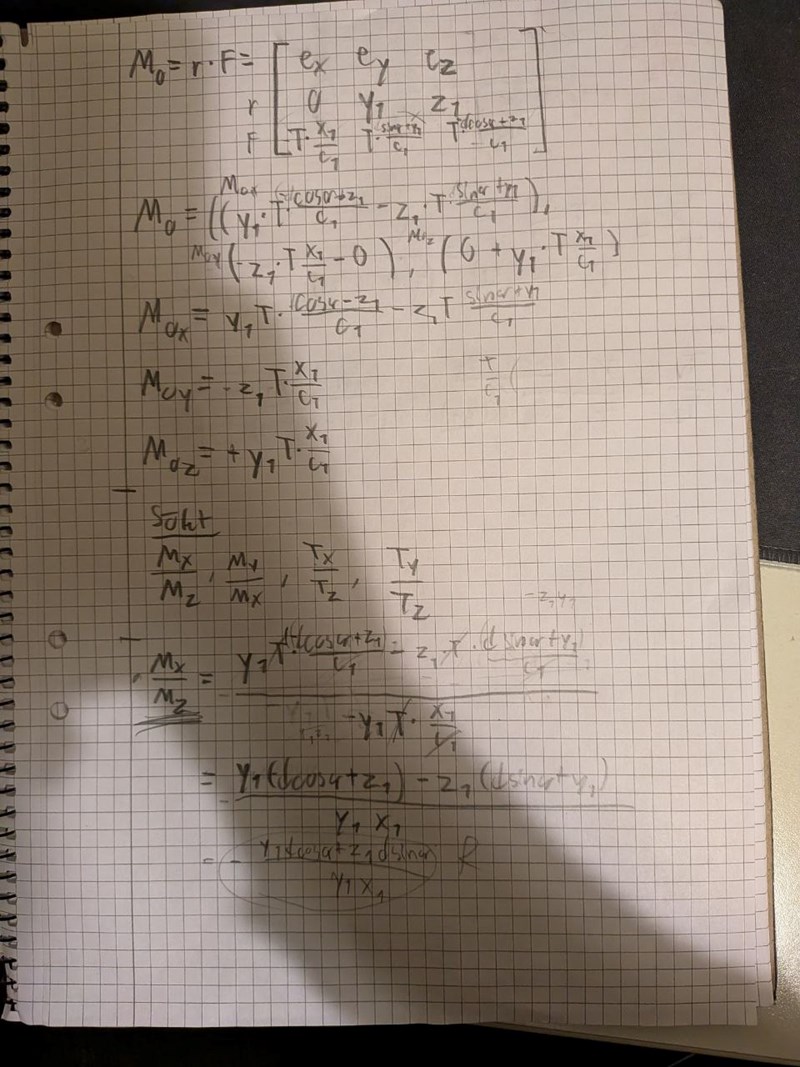 M₀ = r · F = [ eₓ e_y e_z
r 0 y₁ z₁
F T·x₁/c₁ T·(sinα+y₁)/c₁ T·(dcosα+z₁)/c₁ ]
M₀ₓ
M₀ = ((y₁·T·(cosα+z₁)/c₁ − z₁·T·(sinα+y₁)/c₁),
M₀y (−z₁·T x₁/c₁ − 0), M₀z (0 + y₁·T x₁/c₁)
M₀ₓ = y₁T·(cosα−z₁)/c₁ − z₁T (sinα+y₁)/c₁
T/c₁ (
M₀y = −z₁T·x₁/c₁
M₀z = + y₁T·x₁/c₁
Sökt
Mₓ/M_z, M_y/Mₓ, Tₓ/T_z, T_y/T_z
−z₁y₁
Mₓ/M_z = (y₁T·(dcosα+z₁)/c₁ − z₁T·(dsinα+y₁)/c₁) / (−y₁T·x₁/c₁)
= (y₁(dcosα+z₁) − z₁(dsinα+y₁)) / (y₁x₁)
= − (y₁dcosα+z₁dsinα) / (y₁x₁) R